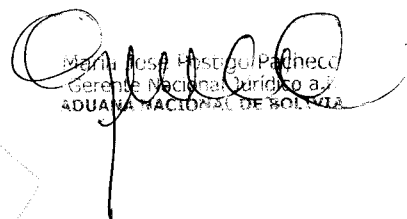 María José Postigo Pacheco
Gerente Nacional Jurídico a.i.
ADUANA NACIONAL DE BOLIVIA